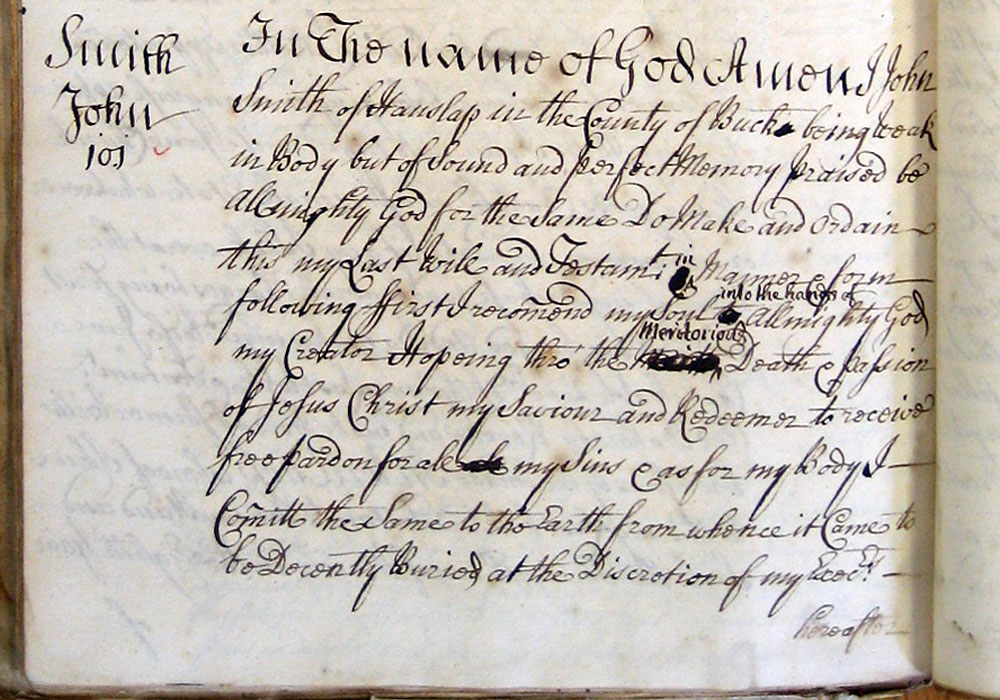 Smith
John
101
In The name of God Amen I John
Smith of Hanslap in the County of Bucks being Weak
in Body but of Sound and perfect Memory praised be
Allmighty God for the same Do Make and Ordain
this my Last Will and Testamt: in Manner & form
following ffirst I recomend my Soul into the hands of Allmighty God
my Creator Hopeing thro' the Meritorious Death & passion
of Jesus Christ my Saviour and Redeemer to receive
free pardon for all my Sins & as for my Body I
Comitt the same to the Earth from whence it Came to
be Decently Buried at the Discretion of my Execrs
hereafter